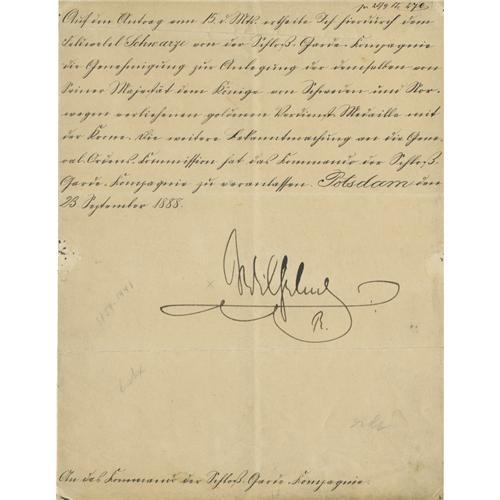 Auf den Antrag vom 15. d. Mts. ertheile Ich hierdurch dem
Feldwebel Schwarze von der Schloß-Garde-Kompagnie
die Genehmigung zur Anlegung der demselben von
Seiner Majestät dem Könige von Schweden und Nor-
wegen verliehenen goldenen Verdienst-Medaille mit
der Krone. Die weitere Bekanntmachung an die Gene-
ral-Ordens-Kommission hat das Kommando der Schloß-
Garde-Kompagnie zu veranlassen. Potsdam den
23. September 1888.
Wilhelm
R.
An das Kommando der Schloß-Garde-Kompagnie.